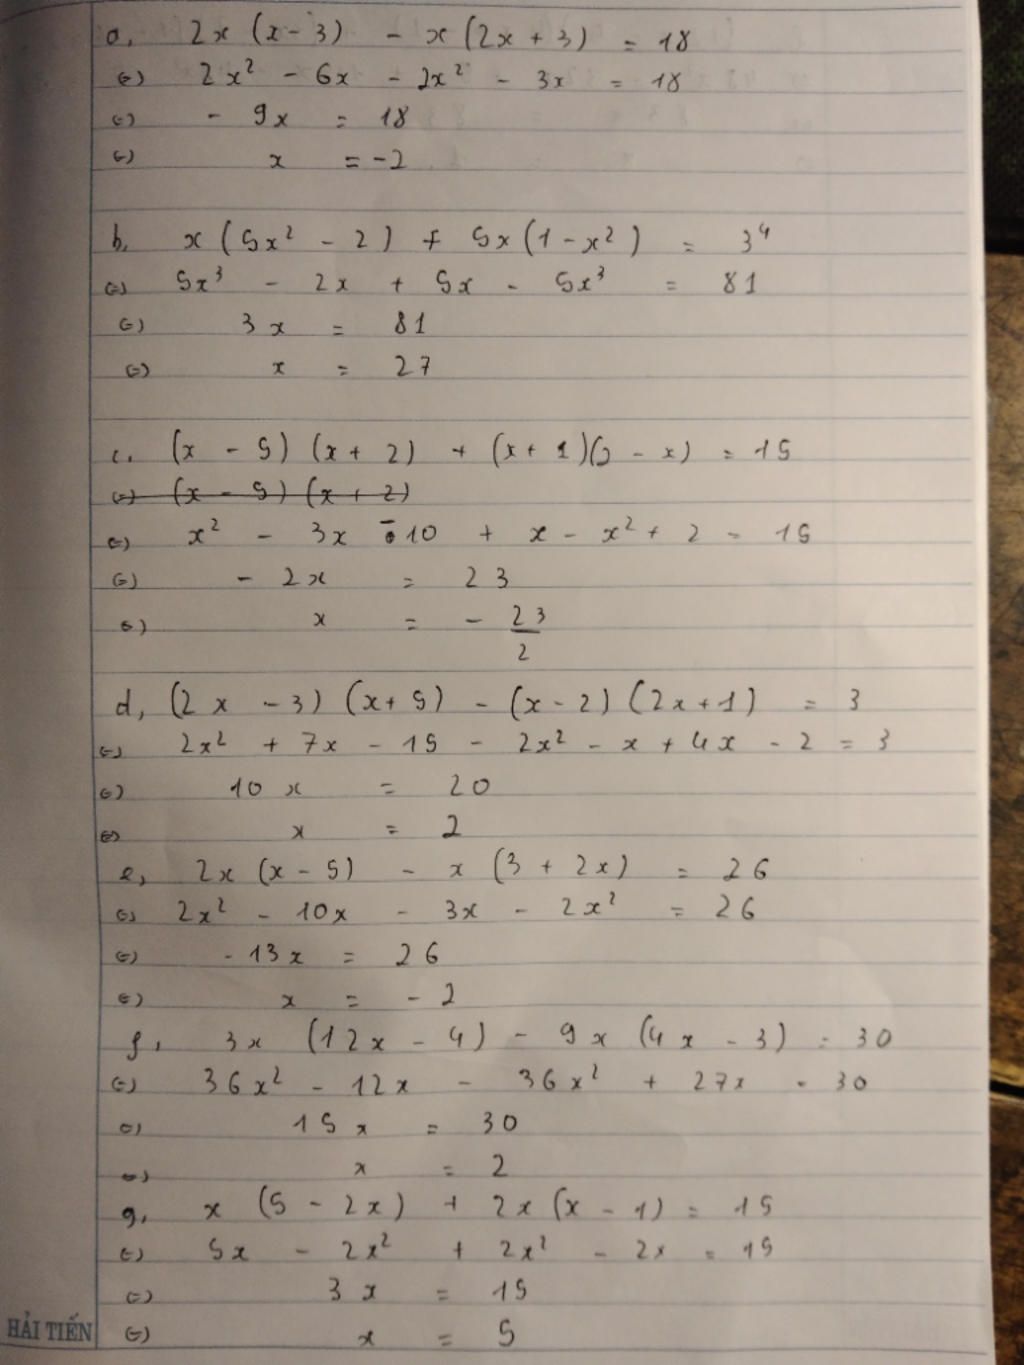 a, 2x (x - 3) - x (2x + 3) = 18
(=) 2x² - 6x - 2x² - 3x = 18
(=) - 9x = 18
(=) x = -2
b, x (5x² - 2) + 5x (1 - x²) = 3⁴
(=) 5x³ - 2x + 5x - 5x³ = 81
(=) 3x = 81
(=) x = 27
c, (x - 5) (x + 2) + (x + 1)(2 - x) = 15
(=) (x - 5) (x + 2)
(=) x² - 3x - 10 + x - x² + 2 = 15
(=) - 2x = 23
(=) x = - 23/2
d, (2x - 3) (x + 5) - (x - 2) (2x + 1) = 3
(=) 2x² + 7x - 15 - 2x² - x + 4x - 2 = 3
(=) 10x = 20
(=) x = 2
e, 2x (x - 5) - x (3 + 2x) = 26
(=) 2x² - 10x - 3x - 2x² = 26
(=) - 13x = 26
(=) x = - 2
f, 3x (12x - 4) - 9x (4x - 3) = 30
(=) 36x² - 12x - 36x² + 27x = 30
(=) 15x = 30
(=) x = 2
g, x (5 - 2x) + 2x (x - 1) = 15
(=) 5x - 2x² + 2x² - 2x = 15
(=) 3x = 15
HẢI TIẾN (=) x = 5